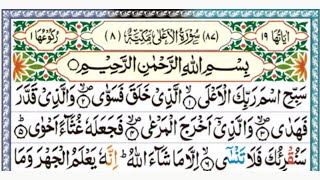 اٰیَاتُهَا ١٩ (٨٧) سُوْرَةُ الْاَعْلٰى مَكِّيَّةٌ (٨) رُكُوْعُهَا ١
بِسْمِ اللّٰهِ الرَّحْمٰنِ الرَّحِيْمِ
سَبِّحِ اسْمَ رَبِّكَ الْاَعْلَى ۙ ١ الَّذِيْ خَلَقَ فَسَوّٰى ۙ ٢ وَالَّذِيْ قَدَّرَ
فَهَدٰى ۙ ٣ وَالَّذِيْٓ اَخْرَجَ الْمَرْعٰى ۙ ٤ فَجَعَلَهٗ غُثَآءً اَحْوٰى ٥
سَنُقْرِئُكَ فَلَا تَنْسٰٓى ۙ ٦ اِلَّا مَا شَآءَ اللّٰهُ ؕ اِنَّهٗ يَعْلَمُ الْجَهْرَ وَمَا